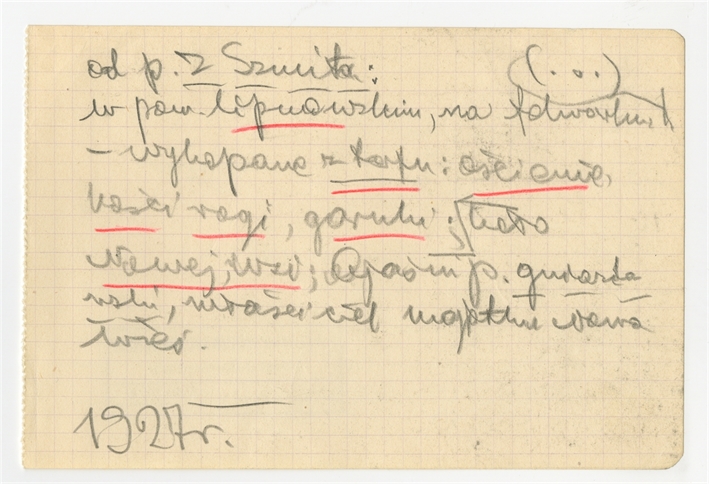 od p. Z Szmita: (...)
w pow. lipnowskim, na folwarku
– wykopane z torfu: ościenie,
kości rogi, garnki; koło
Nowej Wsi; Objaśni p.
właściciel majątku Nowa
Wieś.
1927 r.